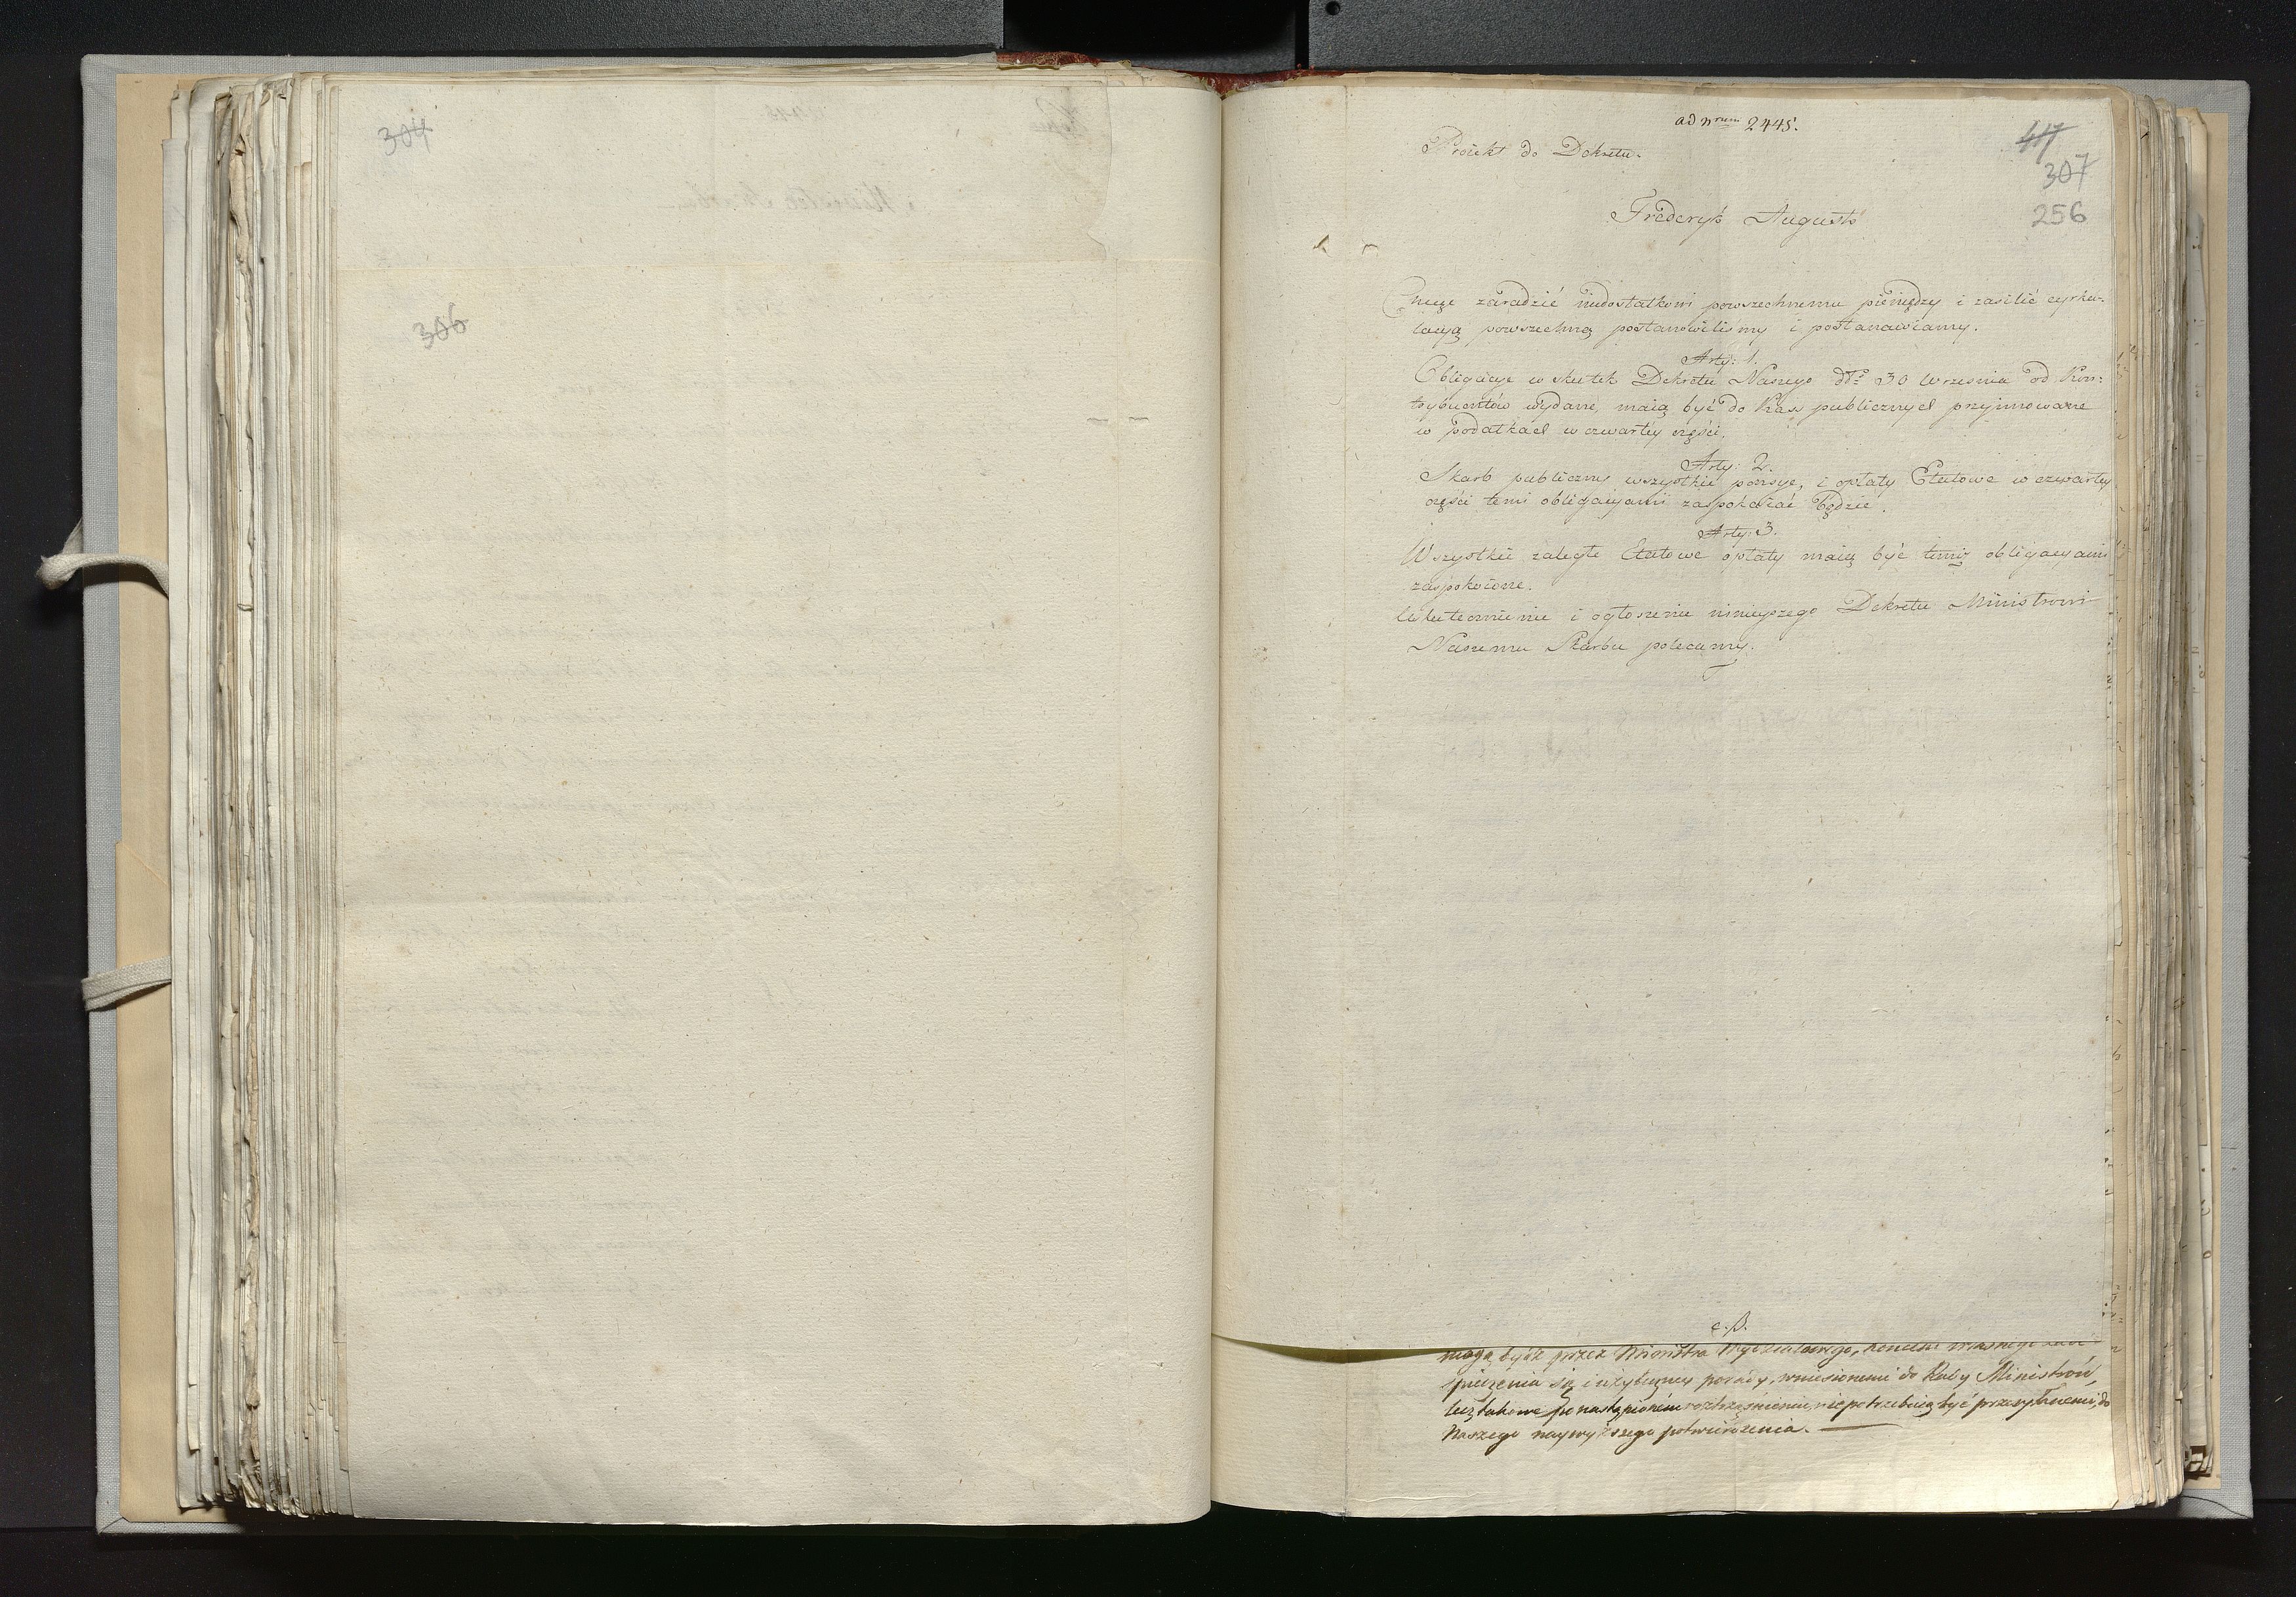 304
306
ad nrum 2445.
417
307
256
Proiekt do Dekretu.
Fryderyk August
Chcąc zaradzić niedostatkowi powszechnemu pieniędzy i zasilić cyrku-
lacyą powszechną postanowiliśmy i postanawiamy.
Arty: 1.
Obligacye w skutek Dekretu Naszego dto 30 Września od Kon-
trybuentów wydane, maią być do Kass publicznych przyimowane
w podatkach w czwartey części.
Arty: 2.
Skarb publiczny wszystkie pensye, i opłaty Etatowe w czwartey
części temi obligacyami zaspokaiać będzie.
Arty: 3.
Wszystkie zaległe Etatowe opłaty maią być temiż obligacyami
zaspokoione.
Uskutecznienie i ogłoszenie ninieyszego Dekretu Ministrowi
Naszemu Skarbu polecamy.
mogą bydź przez Ministra Wydziałowego, końcem własnego zabe
śpieczenia się i użyteczney porady, wniesionemi do Rady Ministrów,
lecz takowe po nastąpioném roztrząśnieniu, nie potrzebuią być przesyłanemi, do
Naszego naywyższego potwierdzenia.